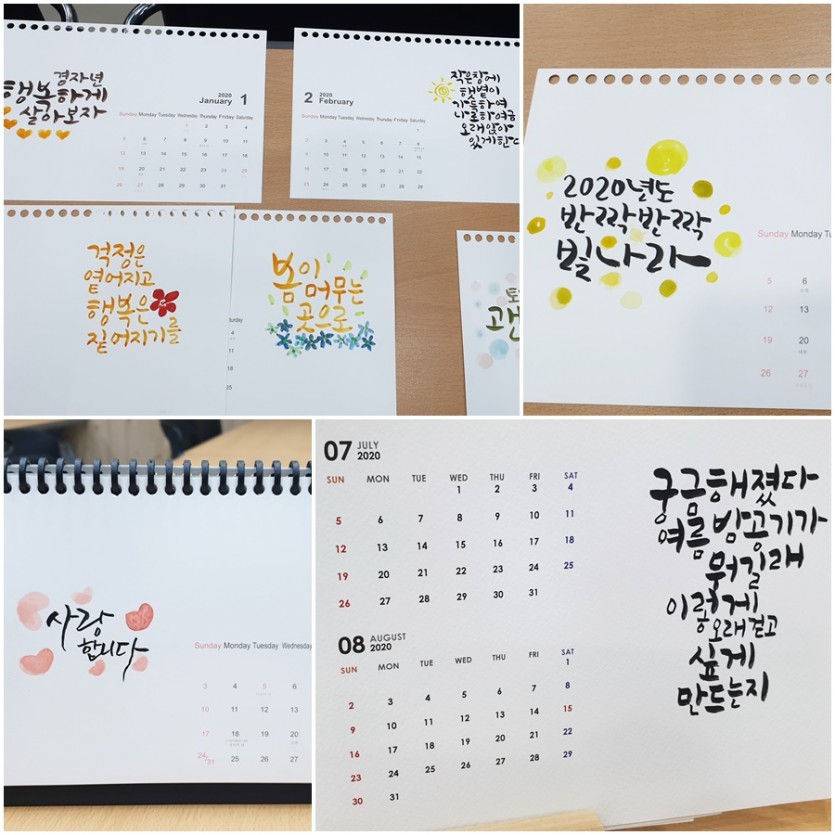 경자년
행복하게
살아보자
2020
January 1
Sunday Monday Tuesday Wednesday Thursday Friday Saturday
2 2020
February
Sunday Monday Tuesday Wednesday Thursday Friday Saturday
작은창에
햇볕이
가득하여
나로하여금
오래앉아
있게한다
걱정은
옅어지고
행복은
짙어지기를
봄이
머무는
곳으로
2020년도
반짝반짝
빛나라
Sunday Monday
5 6
12 13
19 20
26 27
사랑
합니다
Sunday Monday Tuesday Wednesday
3 4 5 6
10 11 12 13
17 18 19 20
24/31 25 26 27
07 JULY
2020
SUN MON TUE WED THU FRI SAT
1 2 3 4
5 6 7 8 9 10 11
12 13 14 15 16 17 18
19 20 21 22 23 24 25
26 27 28 29 30 31
08 AUGUST
2020
SUN MON TUE WED THU FRI SAT
1
2 3 4 5 6 7 8
9 10 11 12 13 14 15
16 17 18 19 20 21 22
23 24 25 26 27 28 29
30 31
궁금해졌다
여름 밤공기가
뭐길래
이렇게
오래걷고
싶게
만드는지